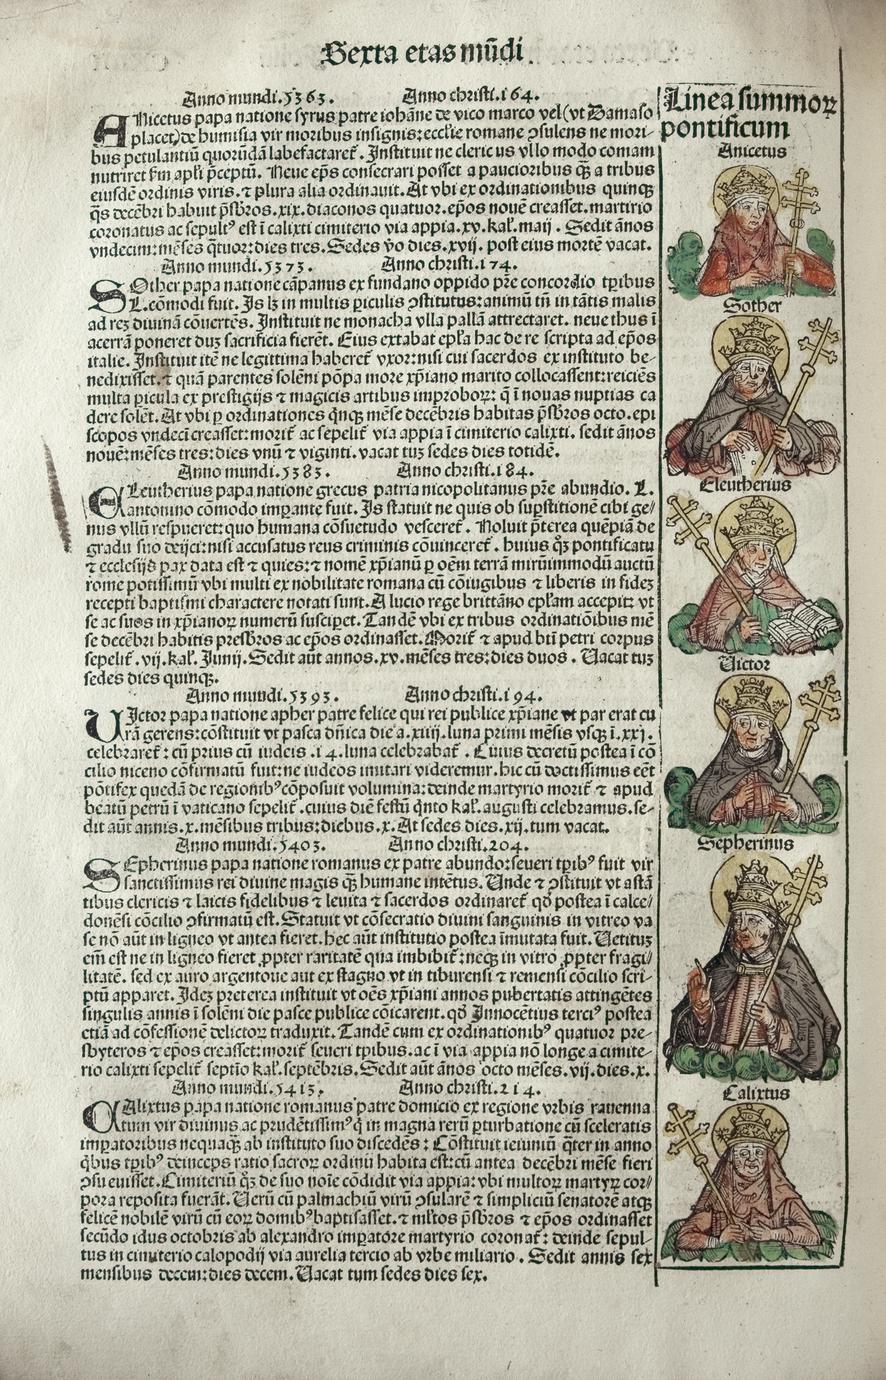 Sexta etas mūdi
Anno mundi.5363. Anno christi.164.
ANicetus papa natione syrus patre iohāne de vico marco vel(vt Damaso
placet)de humisia vir moribus insignis:eccl̄ie romane ꝯsulens ne mori-
bus petulantiū quorūdā labefactaret̄. Instituit ne clericus vllo modo comam
nutriret s̄m apl̄i p̄ceptū. Neue ep̄s consecrari posset a paucioribus q̄ꝫ a tribus
eiusdē ordinis viris. ⁊ plura alia ordinauit. At vbi ex ordinationibus quinqꝫ
q̄s decēbri habuit p̄sb̄ros.xix.diaconos quatuor.ep̄os nouē creasset.martirio
coronatus ac sepultꝰ est ī calixti cimiterio via appia.xv.kal̄.maij . Sedit ānos
vndecim:mēses q̄tuor:dies tres. Sedes v̄o dies.xvij. post eius mortē vacat.
Anno mundi.5373. Anno christi.174.
SOther papa natione cāpanus ex fundano oppido p̄re concordio tp̄ibus
L.cōmodi fuit. Is lꝫ in multis piculis ꝯstitutus:animū tn̄ in tātis malis
ad reꝫ diuinā cōuertēs. Instituit ne monacha vlla pallā attrectaret. neue thus ī
acerrā poneret duꝫ sacrificia fierēt. Eius extabat epl̄a hac de re scripta ad ep̄os
italie. Instituit itē ne legittima haberet̄ vxor:nisi cui sacerdos ex instituto be-
nedixisset.⁊ quā parentes solēni pōpa more xp̄iano marito collocassent:reiciēs
multa ꝑicula ex prestigijs ⁊ magicis artibus improboꝝ: q̄ ī nouas nuptias ca
dere solēt. At vbi ꝑ ordinationes q̄nqꝫ mēse decēbris habitas p̄sb̄ros octo.epi
scopos vndecī creasset:morit̄ ac sepelit̄ via appia ī cimiterio calixti. sedit ānos
nouē:mēses tres:dies vnū ⁊ viginti. vacat tuꝫ sedes dies totidē.
Anno mundi.5383. Anno christi.184.
ELeutherius papa natione grecus patria nicopolitanus p̄re abundio. L.
antonino cōmodo imꝑante fuit. Is statuit ne quis ob suꝑstitionē cibi ge/
nus vllū respueret:quo humana cōsuetudo vesceret̄ . Noluit p̄terea quēpiā de
gradu suo deijci:nisi accusatus reus criminis cōuinceret̄ . huius q̄ꝫ pontificatu
⁊ ecclesijs pax data est ⁊ quies:⁊ nomē xp̄ianū ꝑ oēm terrā mirūimmodū auctū
rome potissimū vbi multi ex nobilitate romana cū cōiugibus ⁊ liberis in fideꝫ
recepti baptismi charactere notati sunt. A lucio rege brittāno epl̄am accepit: vt
se ac suos in xp̄ianoꝝ numerū susciꝑet. Tandē vbi ex tribus ordinatiōibus mē
se decēbri habitis presb̄ros ac ep̄os ordinasset. Morit̄ ⁊ apud btī petri corpus
sepelit̄ .vij.kal̄. Junij. Sedit aūt annos.xv.mēses tres:dies duos . Uacat tuꝫ
sedes dies quinqꝫ.
Anno mundi.5393. Anno christi.194.
UIctor papa natione apher patre felice qui rei publice xp̄iane vt par erat cu
rā gerens:cōstituit vt pasca dn̄ica die a.xiiij.luna primi mēsis vsqꝫ ī.xxj.
celebraret̄ : cū prius cū iudeis .14.luna celebrabat̄ . Cuius decretū postea ī cō
cilio niceno cōfirmatū fuit:ne iudeos imitari videremur.hic cū doctissimus eēt
pōtifex quedā de regionibꝰ cōposuit volumina:deinde martyrio morit̄ ⁊ apud
beatū petrū ī vaticano sepelit̄ .cuius diē festū q̄nto kal̄. augusti celebramus. se-
dit aūt annis.x.mēsibus tribus:diebus.x.At sedes dies.xij.tum vacat.
Anno mundi.5403. Anno christi.204.
SEpherinus papa natione romanus ex patre abundo:seueri tp̄ibꝰ fuit vir
sanctissimus rei diuine magis q̄ꝫ humane intētus. Unde ⁊ ꝯstituit vt astā
tibus clericis ⁊ laicis fidelibus ⁊ leuita ⁊ sacerdos ordinaret̄ qd̄ postea ī calce/
donēsi cōcilio ꝯfirmatū est. Statuit vt cōsecratio diuini sanguinis in vitreo va
se nō aūt in ligneo vt antea fieret. hec aūt institutio postea īmutata fuit. Uetituꝫ
em̄ est ne in ligneo fieret ꝓpter raritatē qua imbibit̄: neqꝫ in vitro ꝓpter fragi/
litatē. sed ex auro argentoue aut ex stagno vt in tiburensi ⁊ remensi cōcilio scri-
ptū apparet. Ideꝫ preterea instituit vt oēs xp̄iani annos pubertatis attingētes
singulis annis ī solēni die pasce publice cōicarent. qd̄ Innocētius terciꝰ postea
etiā ad cōfessionē delictoꝝ traduxit. Tandē cum ex ordinationibꝰ quatuor pre-
sbyteros ⁊ ep̄os creasset:morit̄ seueri tp̄ibus.ac ī via appia nō longe a cimite-
rio calixti sepelit̄ septīo kal̄.septēbris. Sedit aūt ānos octo mēses.vij.dies.x.
Anno mundi.5413. Anno christi.214.
CAlixtus papa natione romanus patre domicio ex regione vrbis rauenna
tum vir diuinus ac prudētissimꝰ q̄ in magna rerū ꝑturbatione cū sceleratis
imꝑatoribus nequaqꝫ ab instituto suo discedēs : Cōstituit ieiuniū q̄ter in anno
q̄bus tp̄ibꝰ deinceps ratio sacroꝝ ordinū habita est:cū antea decēbri mēse fieri
ꝯsueuisset. Cimiteriū q̄ꝫ de suo noīe cōdidit via appia: vbi multoꝝ martyꝝ cor/
pora reposita fuerāt. Uerū cū palmachiū virū ꝯsularē ⁊ simpliciū senatorē atqꝫ
felicē nobilē virū cū eoꝝ domibꝰ baptisasset.⁊ ml̄tos p̄sb̄ros ⁊ ep̄os ordinasset
secūdo idus octobris ab alexandro imꝑatore martyrio coronat̄: deinde sepul-
tus in cimiterio calopodij via aurelia tercio ab vrbe miliario . Sedit annis sex
mensibus decem:dies decem. Uacat tum sedes dies sex.
Linea summoꝝ
pontificum
Anicetus
Sother
Eleutherius
Uictor
Sepherinus
Calixtus